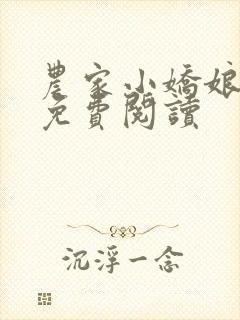 農家小嬌娘
免費閱讀
沉浮一念